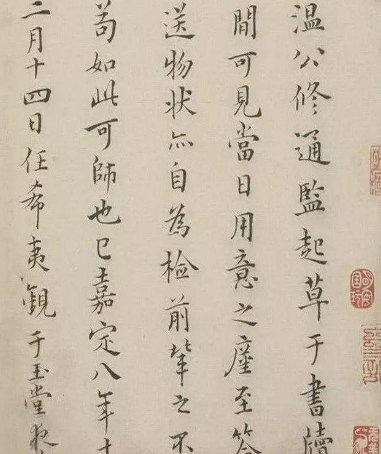 温公修通監起草于書牘
間可見當日用意之
至
送物状亦自為檢前輩之不
苟如此可師也已嘉定八年十
二月十四日任希夷觀于玉堂夜